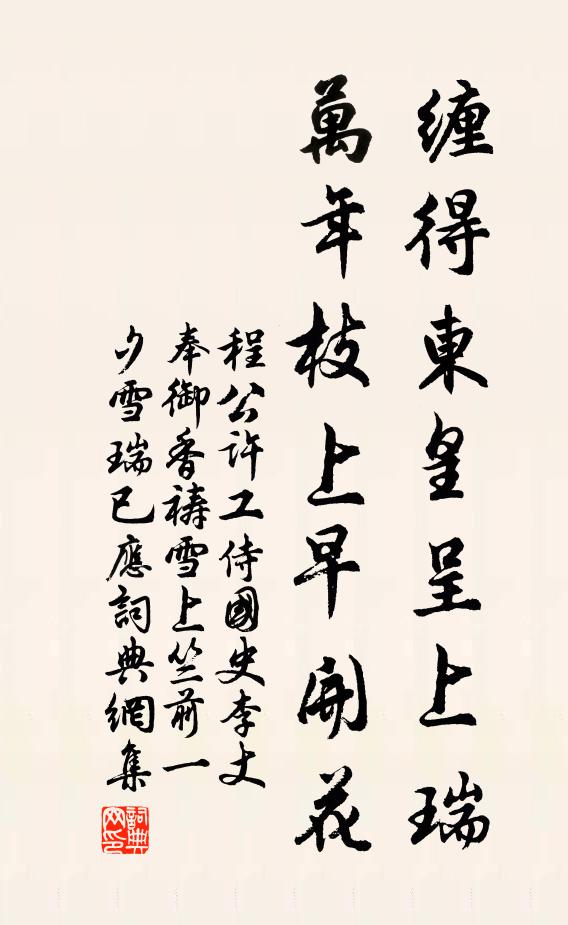 纏得東皇呈上瑞
萬年枝上早開花
程公許工侍國史李丈
奉御香禱雪上竺前一
夕雪瑞已應詞典網集
詞典网印